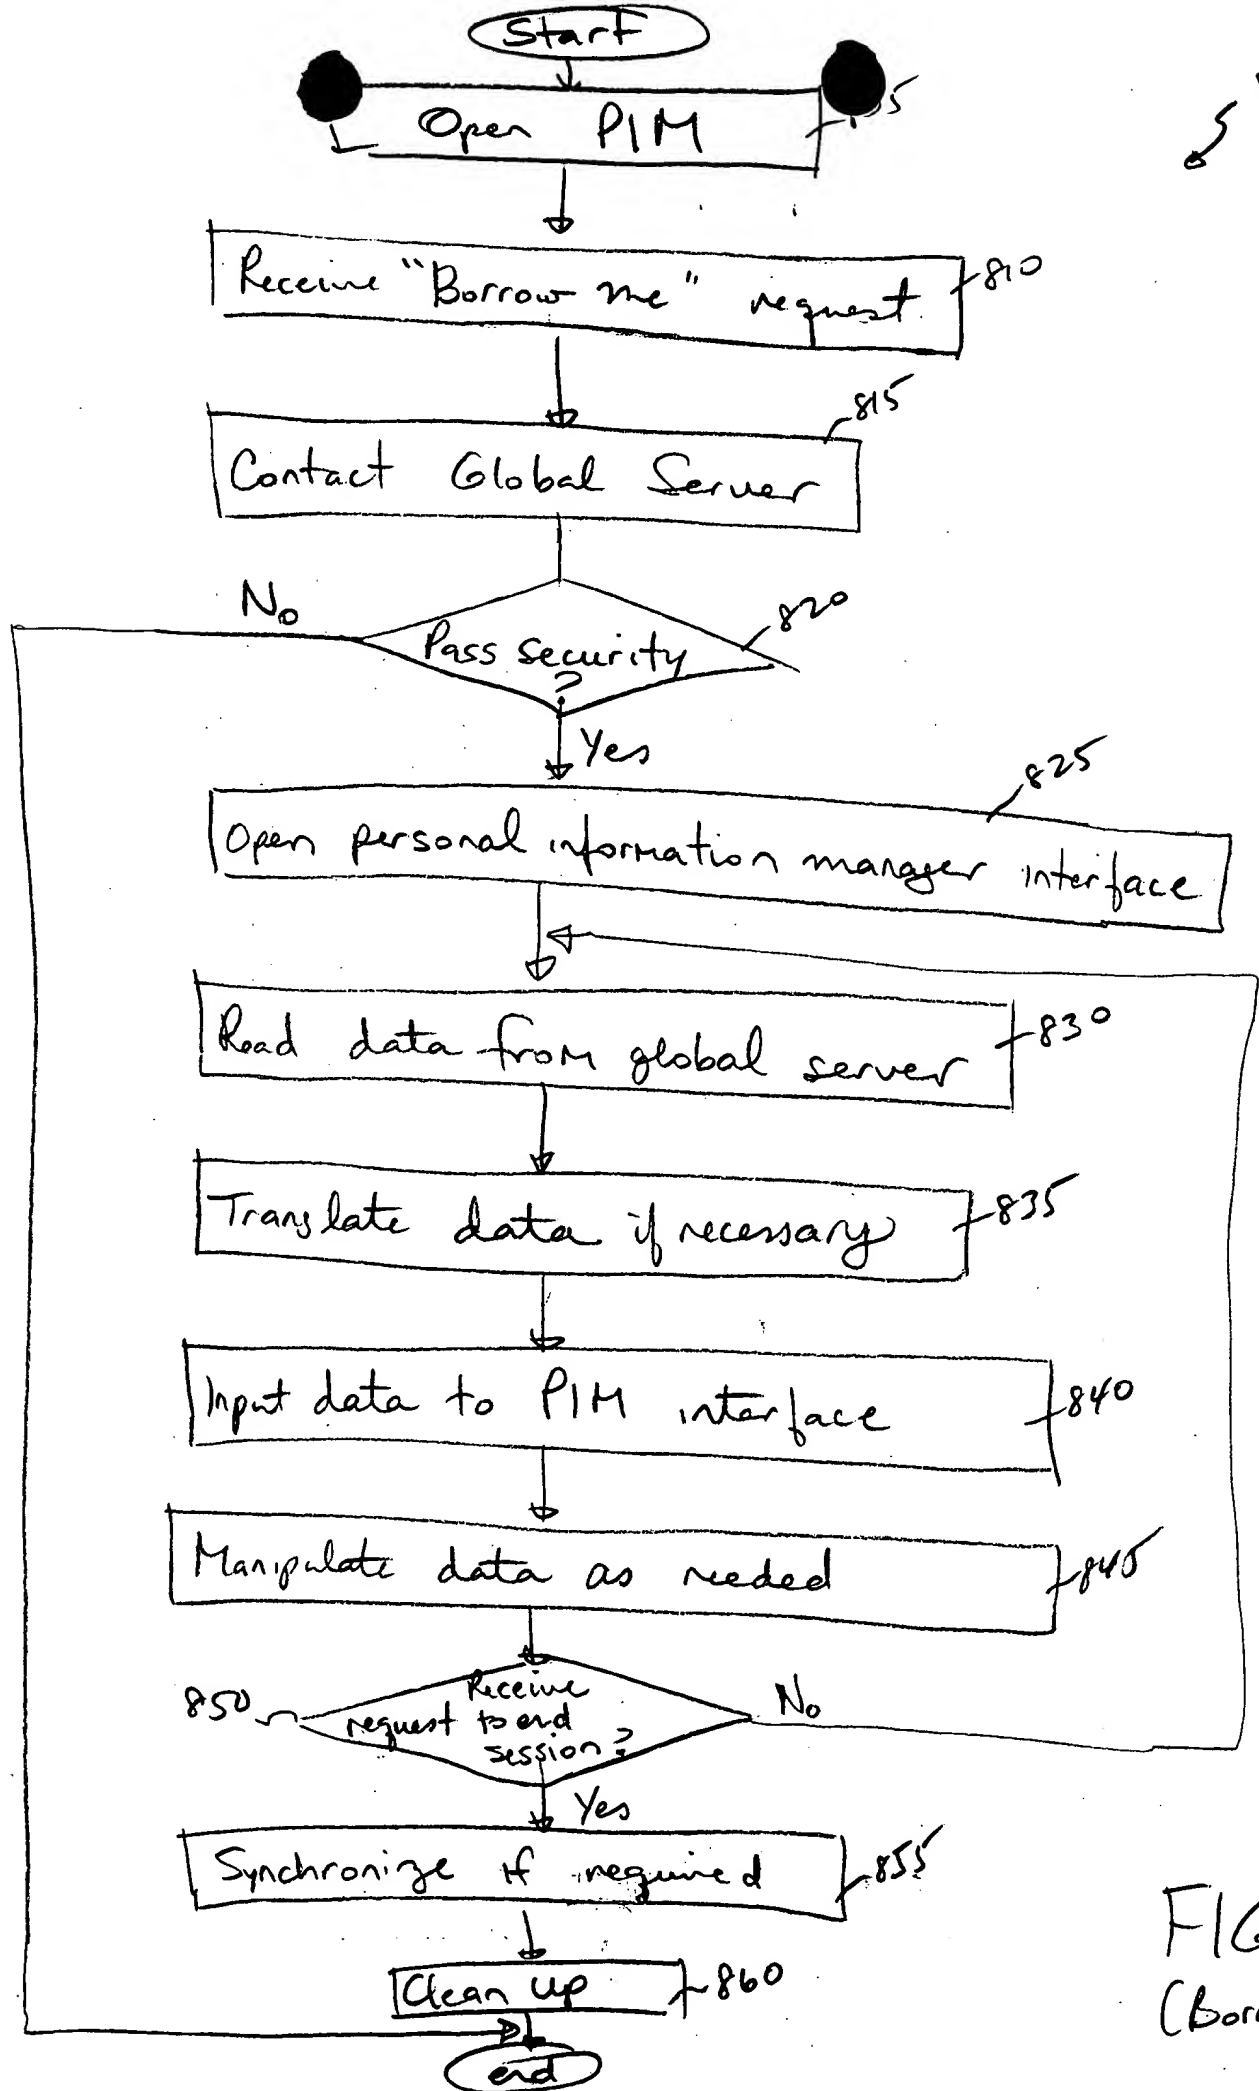 Start
Open PIM
Receive "Borrow me" request
810
815
Contact Global Server
No
820
Pass security
?
Yes
825
Open personal information manager interface
830
Read data from global server
835
Translate data if necessary
840
Input data to PIM interface
845
Manipulate data as needed
850
Receive
request to end
session?
No
Yes
Synchronize if required
855
Clean up
860
end